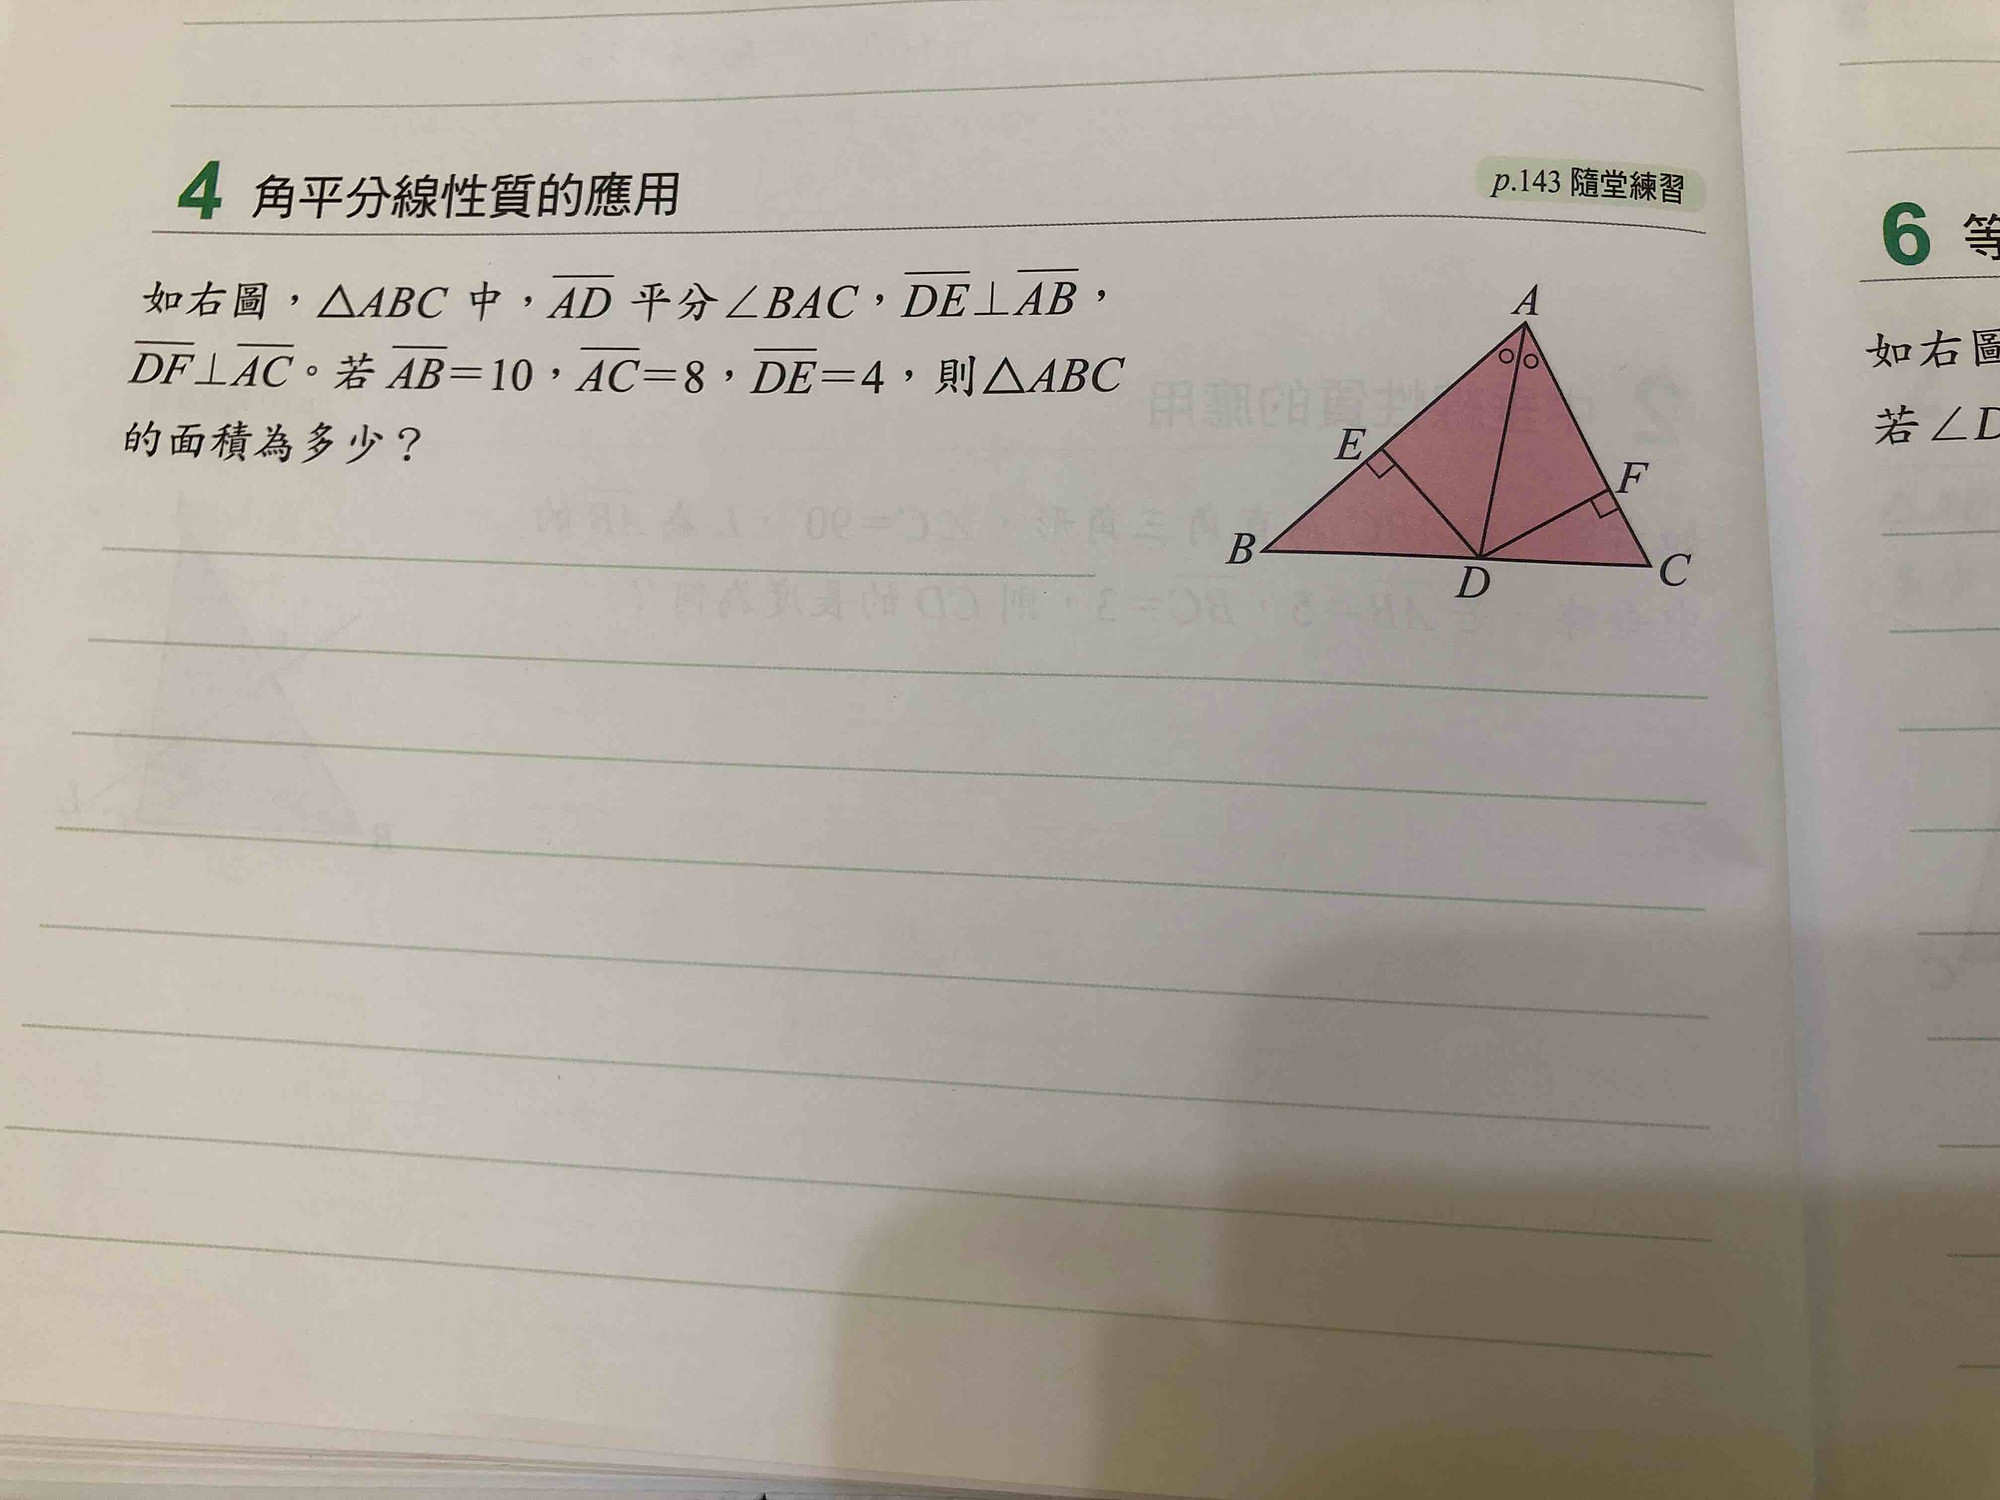 4 角平分線性質的應用
p.143 隨堂練習
如右圖，△ABC 中，AD 平分∠BAC，DE⊥AB，
DF⊥AC。若 AB=10，AC=8，DE=4，則△ABC
的面積為多少？
A
E
F
B
D
C
6 等
如右圖
若∠D